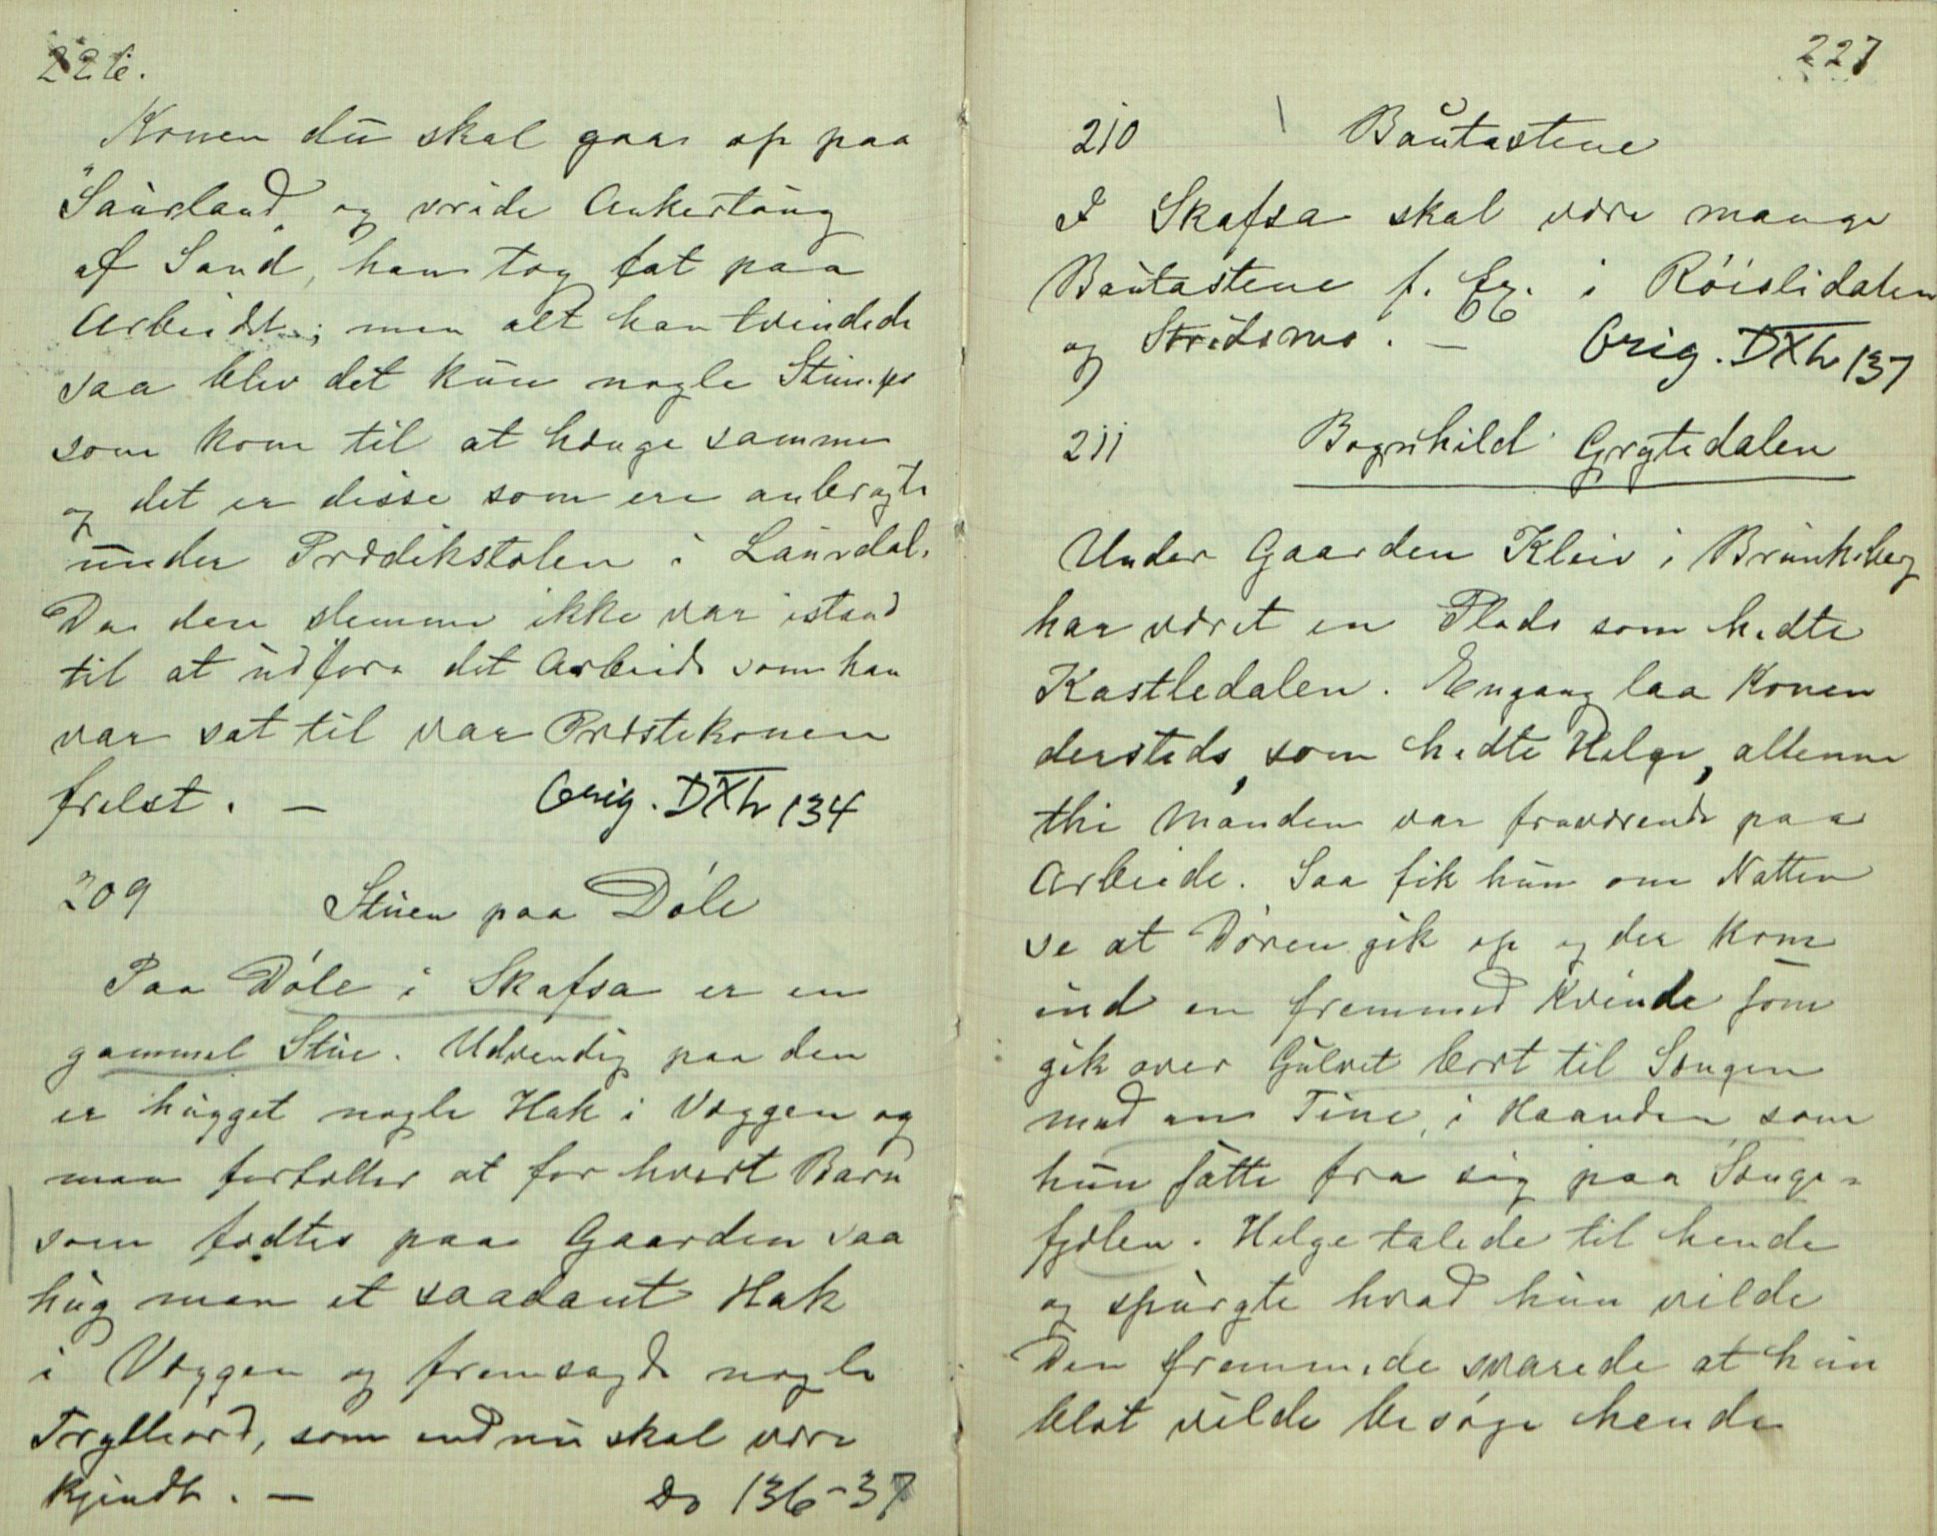 226.
Konen du skal gaa op paa
"Saurland" og vride Ankertoug
af Sand, han tog fat paa
Arbeidet; men alt han tvindede
saa blev det kun nogle Stumper
som kom til at hænge sammen
og det er disse som ere anbragte
under Prædikstolen i Laurdal.
Da den slemme ikke var istand
til at udføre det Arbeide som han
var sat til var Præstekonen
frelst. —
Orig. DXIV 134
209
Stuen paa Dóle
Paa Dóle i Skafsa er en
gammel Stue. Udvendig paa den
er hugget nogle Hak i Væggen og
man fortæller at for hvert Barn
som fødtes paa Gaarden saa
hug man et saadant Hak
i Væggen og fremsagde nogle
Trylleord, som endnu skal være
kjendt. —
Do 136-37
227
210
Bautastene
I Skafsa skal være mange
Bautastene f. Ex. i Róislidalen
og Stridsmo. —
Orig. DXIV 137
211
Bognhild Grytedalen
Under Gaarden Kleiv i Brunkeberg
har været en Plads som hedte
Kastledalen. Engang laa Konen
dersteds, som hedte Helge, allene
thi Manden var fraværende paa
Arbeide. Saa fik hun om Natten
se at Døren gik op og der kom
ind en fremmed Kvinde som
gik over Gulvet bort til Sengen
med en Tine i Haanden som
hun satte fra sig paa Senge=
fjølen. Helge talede til hende
og spurgte hvad hun vilde
Den fremmede svarede at hun
blot vilde besøge hende